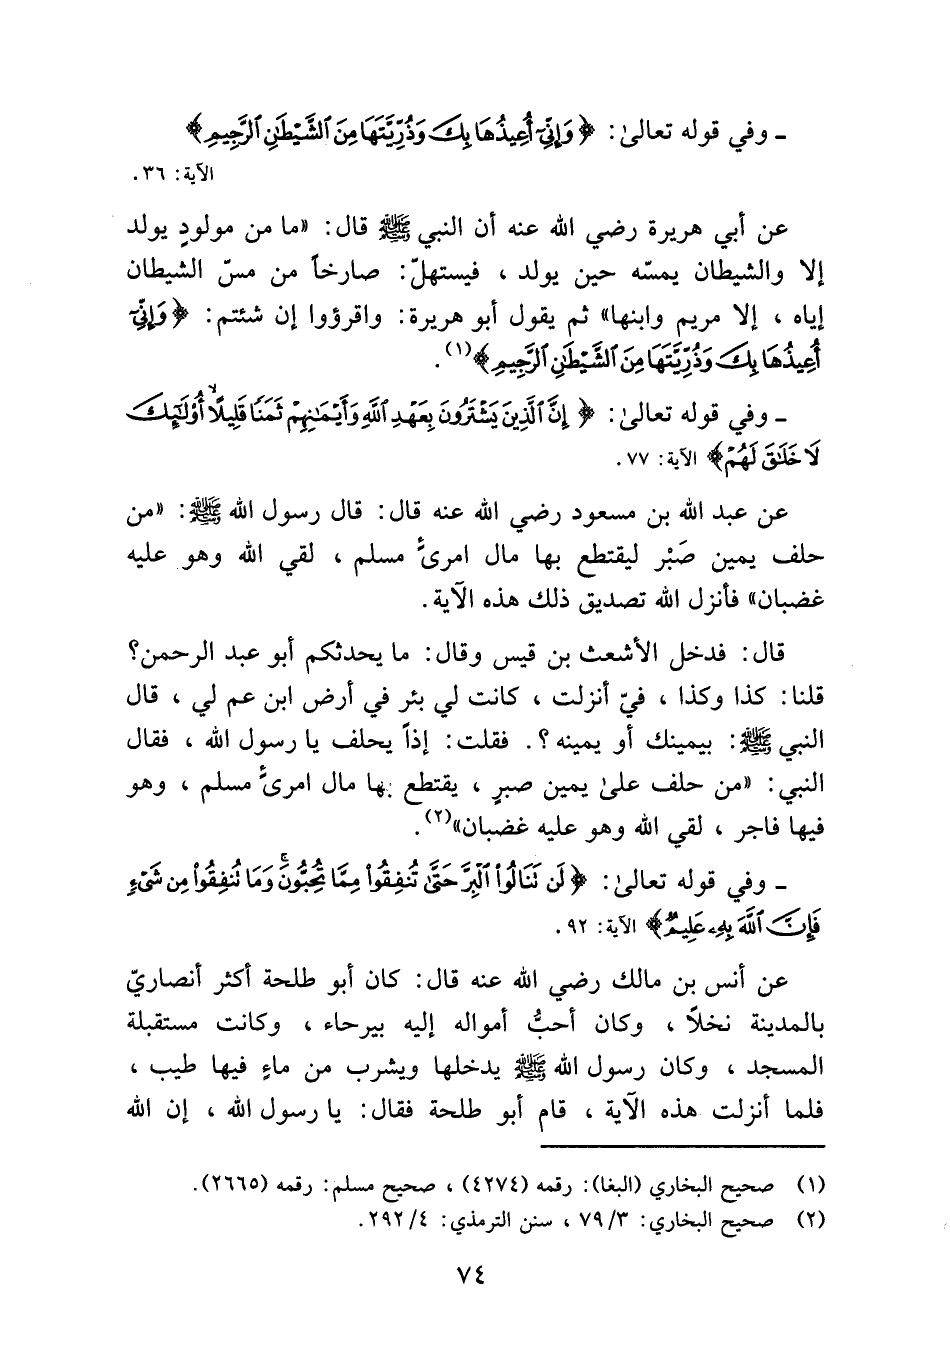 ـ وفي قوله تعالىٰ: ﴿ وَإِنِّىٓ أُعِيذُهَا بِكَ وَذُرِّيَّتَهَا مِنَ ٱلشَّيْطَٰنِ ٱلرَّجِيمِ ﴾
الآية: ٣٦ .
عن أبي هريرة رضي الله عنه أن النبي ﷺ قال: «ما من مولودٍ يولد
إلا والشيطان يمسّه حين يولد ، فيستهلّ: صارخاً من مسّ الشيطان
إياه ، إلا مريم وابنها» ثم يقول أبو هريرة: واقرؤوا إن شئتم: ﴿ وَإِنِّىٓ
أُعِيذُهَا بِكَ وَذُرِّيَّتَهَا مِنَ ٱلشَّيْطَٰنِ ٱلرَّجِيمِ ﴾(١) .
ـ وفي قوله تعالىٰ: ﴿ إِنَّ ٱلَّذِينَ يَشْتَرُونَ بِعَهْدِ ٱللَّهِ وَأَيْمَٰنِهِمْ ثَمَنًا قَلِيلًا ۙ أُوْلَٰٓئِكَ
لَا خَلَٰقَ لَهُمْ ﴾ الآية: ٧٧ .
عن عبد الله بن مسعود رضي الله عنه قال: قال رسول الله ﷺ: «من
حلف يمين صَبْر ليقتطع بها مال امرئٍ مسلم ، لقي الله وهو عليه
غضبان» فأنزل الله تصديق ذلك هذه الآية .
قال: فدخل الأشعث بن قيس وقال: ما يحدثكم أبو عبد الرحمن؟
قلنا: كذا وكذا ، فيّ أنزلت ، كانت لي بئر في أرض ابن عم لي ، قال
النبي ﷺ: بيمينك أو يمينه ؟. فقلت: إذاً يحلف يا رسول الله ، فقال
النبي: «من حلف علىٰ يمين صبرٍ ، يقتطع بها مال امرئٍ مسلم ، وهو
فيها فاجر ، لقي الله وهو عليه غضبان»(٢) .
ـ وفي قوله تعالىٰ: ﴿ لَن نَنَالُوا۟ ٱلْبِرَّ حَتَّىٰ تُنفِقُوا۟ مِمَّا تُحِبُّونَ ۚ وَمَا تُنفِقُوا۟ مِن شَىْءٍ
فَإِنَّ ٱللَّهَ بِهِۦ عَلِيمٌ ﴾ الآية: ٩٢ .
عن أنس بن مالك رضي الله عنه قال: كان أبو طلحة أكثر أنصاريّ
بالمدينة نخلاً ، وكان أحبُّ أمواله إليه بيرحاء ، وكانت مستقبلة
المسجد ، وكان رسول الله ﷺ يدخلها ويشرب من ماءٍ فيها طيب ،
فلما أنزلت هذه الآية ، قام أبو طلحة فقال: يا رسول الله ، إن الله
(١) صحيح البخاري (البغا): رقمه (٤٢٧٤) ، صحيح مسلم: رقمه (٢٦٦٥).
(٢) صحيح البخاري: ٣/ ٧٩ ، سنن الترمذي: ٤/ ٢٩٢ .
٧٤